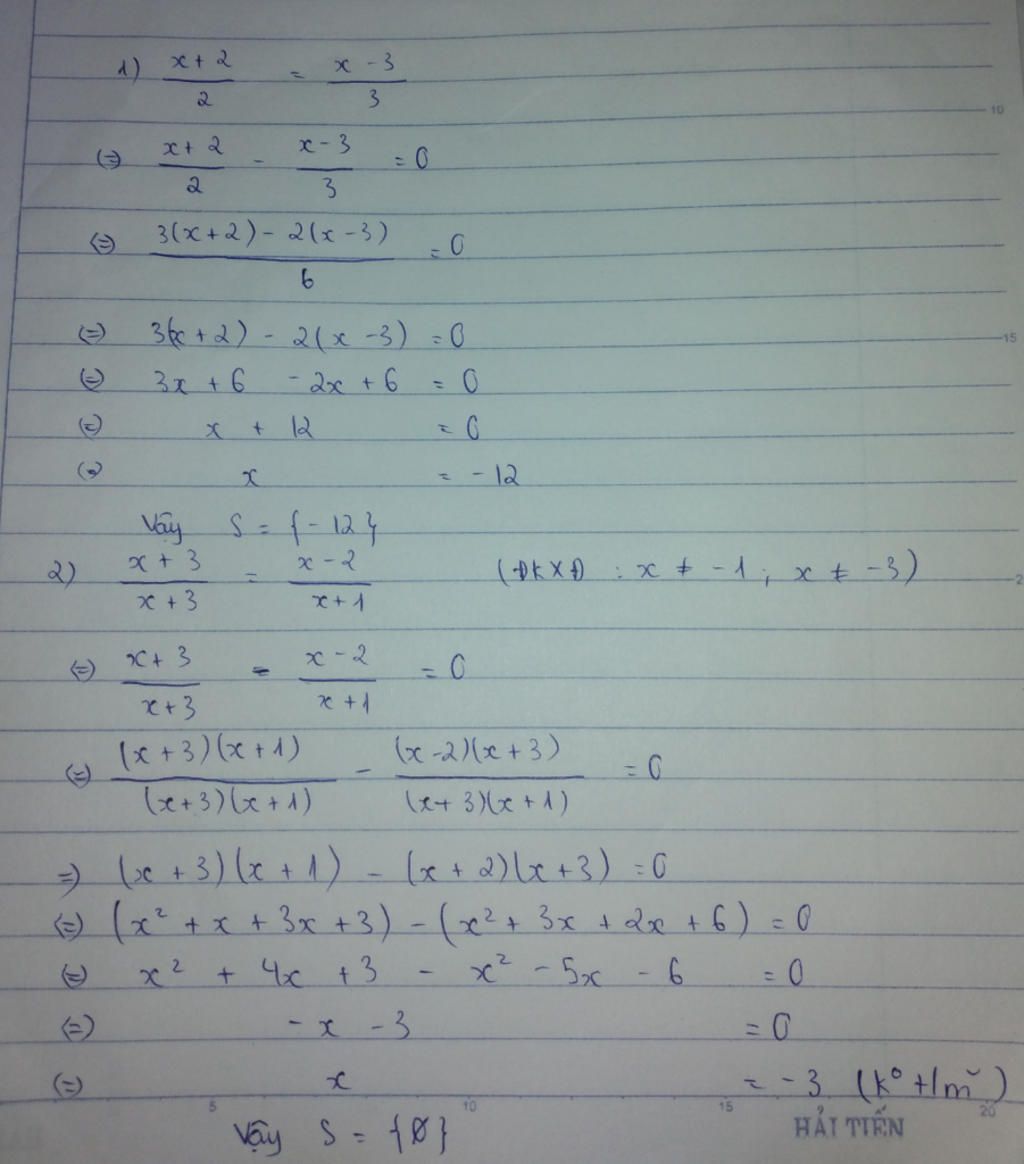 1) (x + 2)/2 = (x - 3)/3
(=) (x + 2)/2 - (x - 3)/3 = 0
(=) (3(x + 2) - 2(x - 3))/6 = 0
(=) 3(x + 2) - 2(x - 3) = 0
(=) 3x + 6 - 2x + 6 = 0
(=) x + 12 = 0
(=) x = -12
Vậy S = {-12}
2) (x + 3)/(x + 3) = (x - 2)/(x + 1) (ĐKXĐ : x ≠ -1 ; x ≠ -3)
(=) (x + 3)/(x + 3) - (x - 2)/(x + 1) = 0
(=) ((x + 3)(x + 1))/((x + 3)(x + 1)) - ((x - 2)(x + 3))/((x + 3)(x + 1)) = 0
=) (x + 3)(x + 1) - (x + 2)(x + 3) = 0
(=) (x² + x + 3x + 3) - (x² + 3x + 2x + 6) = 0
(=) x² + 4x + 3 - x² - 5x - 6 = 0
(=) -x - 3 = 0
(=) x = -3 (k° t/m)
Vậy S = {Ø}
HẢI TIẾN
5 10 15 20
10
15
2